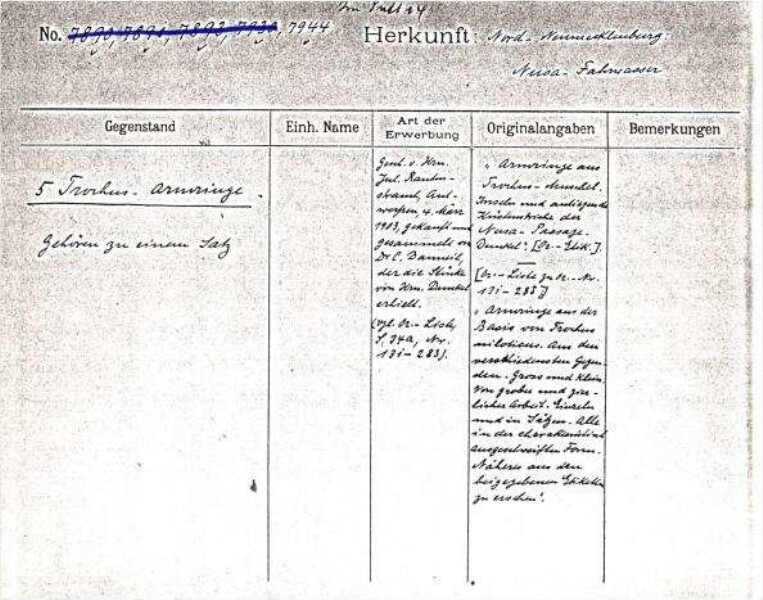 Im Pult 14
No. 7890, 7891, 7893, 7930, 7944
Herkunft: Nord-Neumecklenburg:
Nusa-Fahrwasser
Gegenstand
Einh. Name
Art der
Erwerbung
Originalangaben
Bemerkungen
5 Trochus-Armringe.
Gehören zu einem Satz
Gesch. v. Hrn.
Jul.
Ant-
werpen, 4. März
1903, gekauft und
gesammelt von
Dr. C.
der die Stücke
von Hrn. Dunkel
erhielt.
(vgl. Or.-Liste,
S. 34a, Nr.
13i-283).
„Armringe aus
Trochus-Muschel.
Inseln und anliegende
Küstenstriche der
Nusa-Passage.
Dunkel“. [Or.-Etik.].
[Or.-Liste zu Or.-Nr.
13i-283]
„Armringe aus der
Basis von Trochus
niloticus. Aus den
verschiedensten Gegen-
den. Gross und klein,
von grober und zier-
licher Arbeit. Einzeln
und in Sätzen. Alle
in der charakteristisch
ausgeschweiften Form.
Näheres aus den
beigegebenen Etiketten
zu ersehen“.